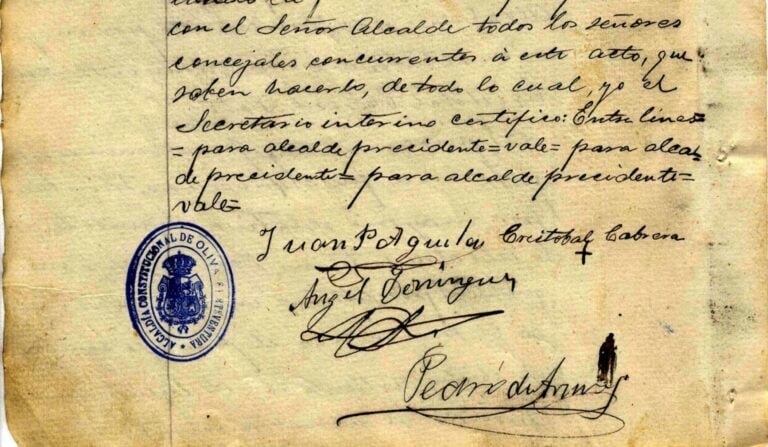 con el Señor Alcalde todos los señores
concejales concurrentes à este acto, que
saben hacerlo, de todo lo cual, yo el
Secretario interino certifico: Entre lineas=
= para alcalde precidente=vale= para alcal
de precidente= para alcalde precidente=
vale=
Juan P Aguilar Cristobal Cabrera
Angel Dominguez
Pedro de Armas
ALCALDÍA CONSTITUCIONAL DE OLIVA